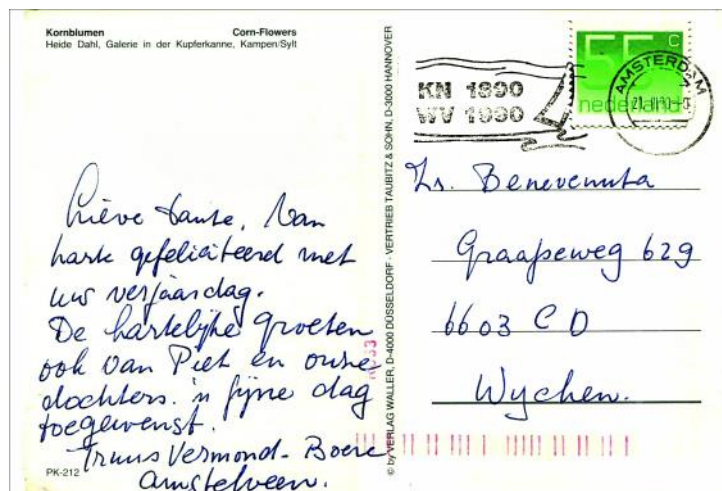 Kornblumen Corn-Flowers
Heide Dahl, Galerie in der Kupferkanne, Kampen/Sylt
Lieve tante, Van
harte gefeliciteerd met
uw verjaardag.
De hartelijke groeten
ook van Piet en onze
dochters. 'n fijne dag
toegewenst.
Truus Vermond-Boere
Amstelveen.
PK-212
© by VERLAG WALLER, D-4000 DÜSSELDORF · VERTRIEB TAUBITZ & SOHN, D-3000 HANNOVER
KN 1890
WV 1990
55 c
nederland
AMSTERDAM
Zr. Benevenuta
Graafseweg 629
6603 CD
Wychen.